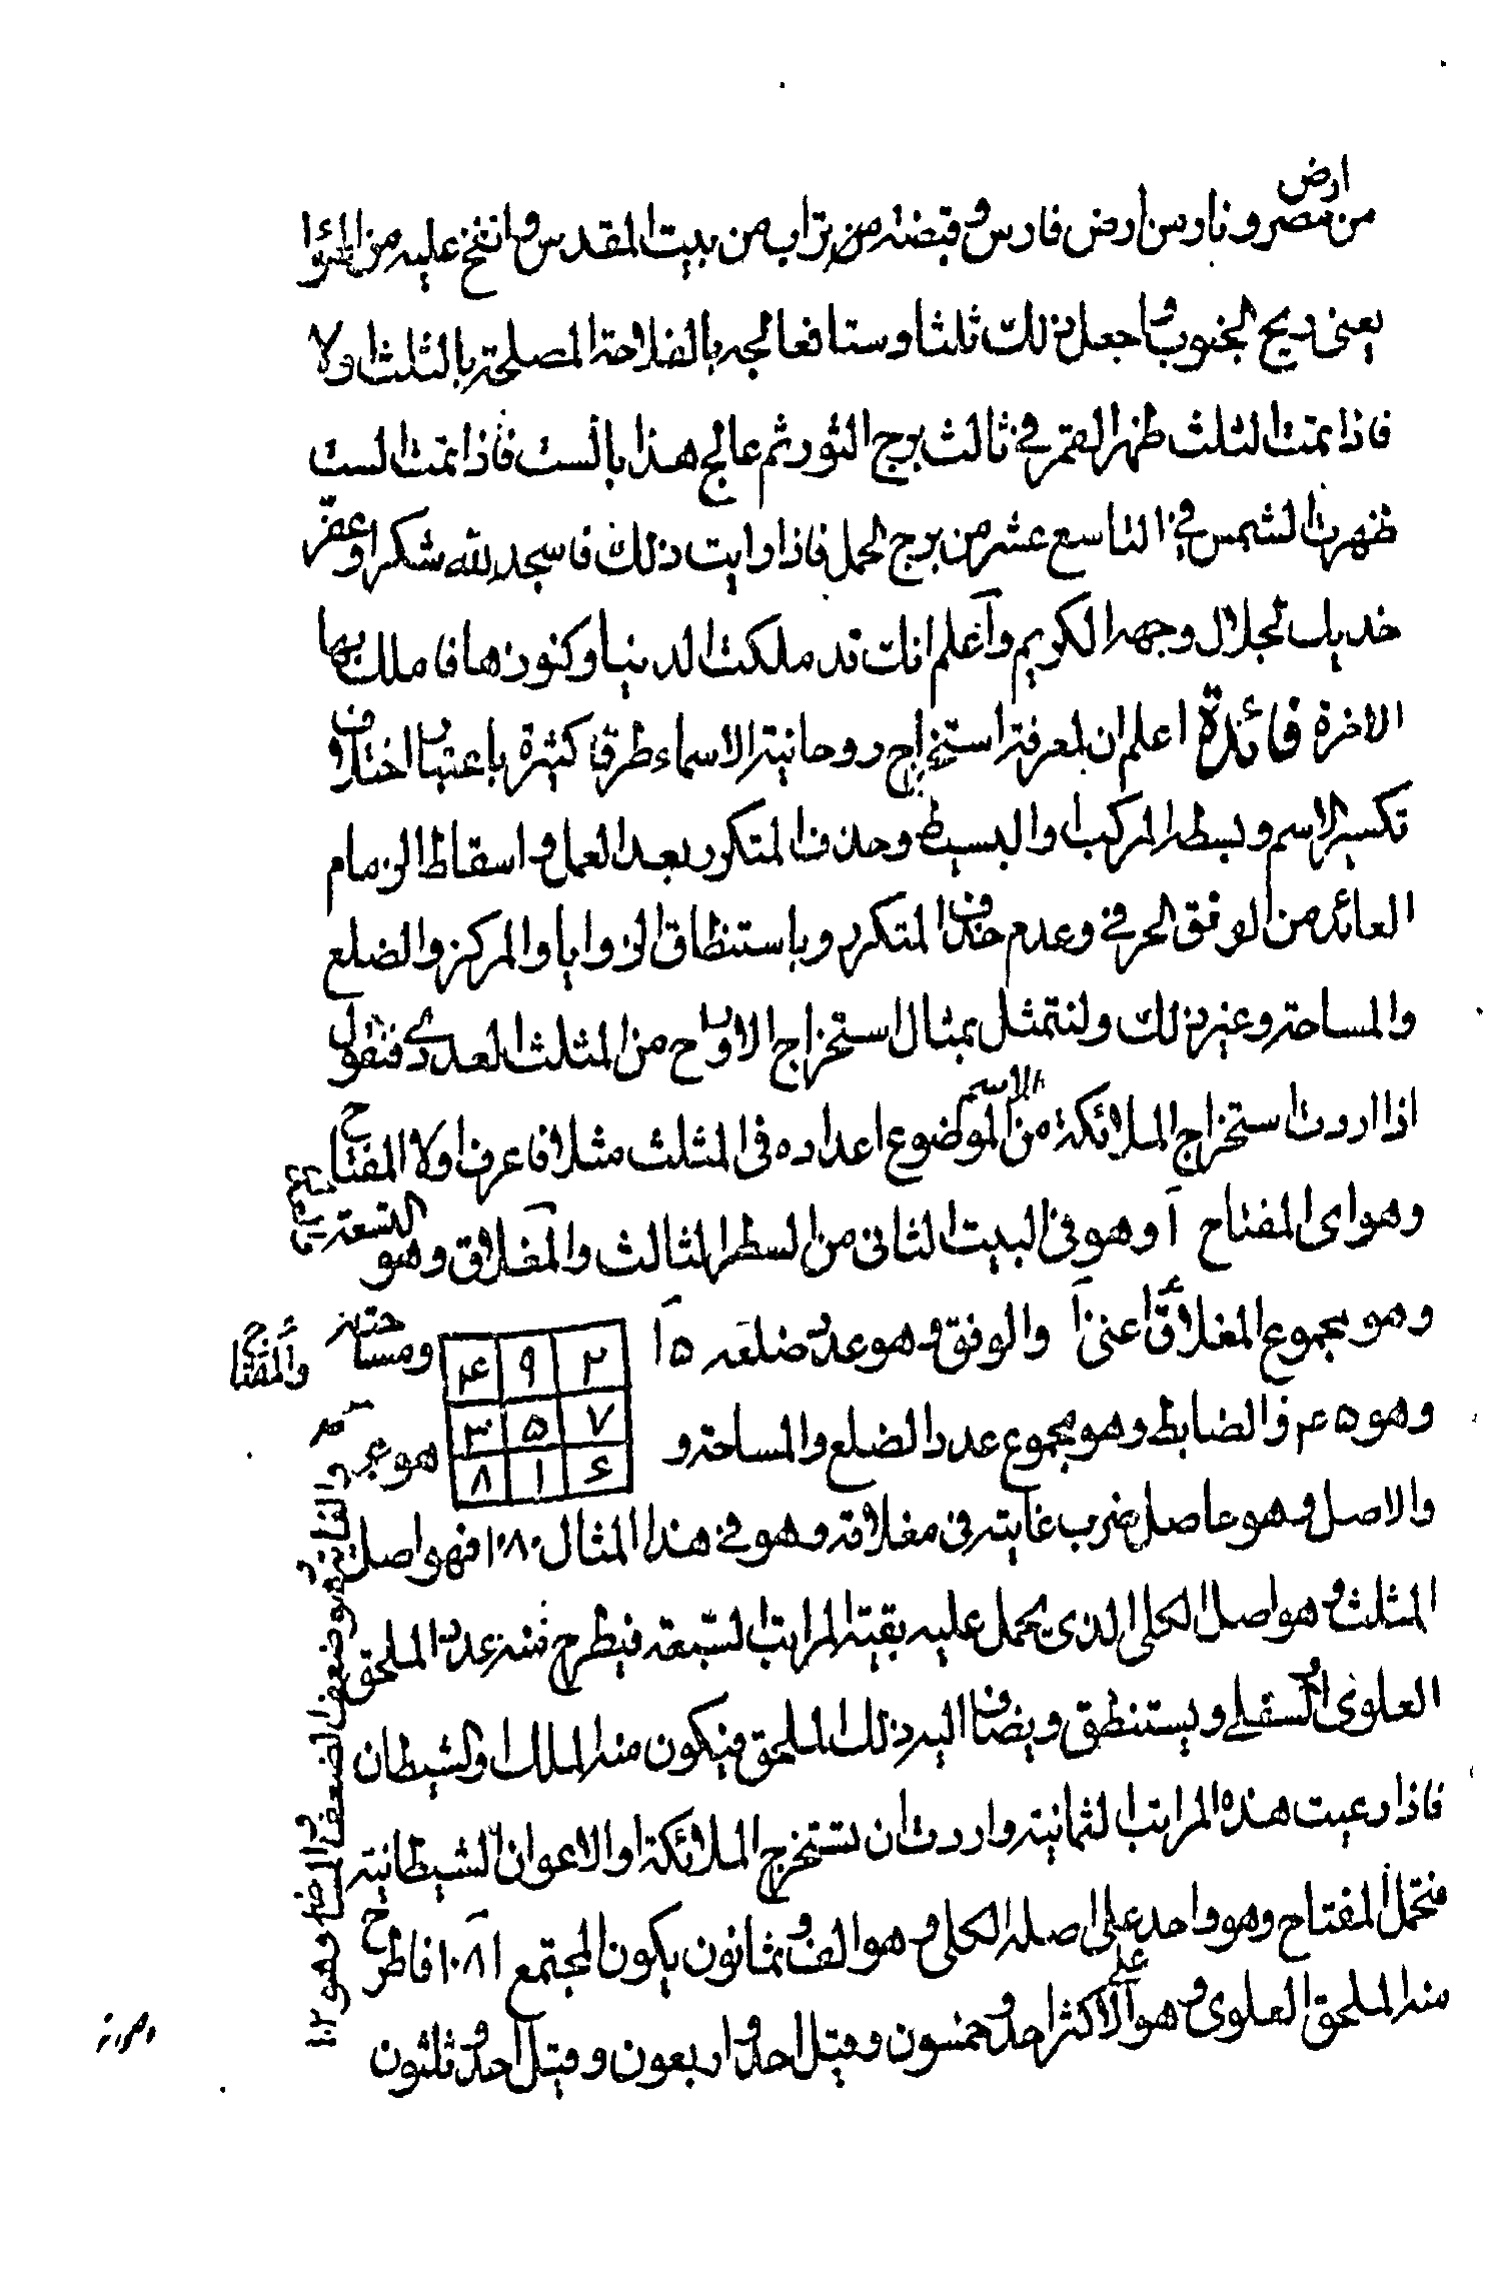 من ارض مصر ونار من ارض فارس وقبضة من تراب من بيت المقدس وانفخ عليه من الهوا
يعنى ريح الجنوب واجعل ذلك ثلثا وستا فعالجه بالفلاحة المصلحة بالثلث اولا
فاذا تمت الثلث ظهر القمر فى ثالث برج الثور ثم عالج هذا بالست فاذا تمت الست
ظهرت الشمس فى التاسع عشر من برج الحمل فاذا رايت ذلك فاسجد لله شكرا وعفر
خديك لجلال وجهه الكريم واعلم انك قد ملكت الدنيا وكنوزها فاملك بها
الاخرة فائدة اعلم ان لمعرفة استخراج روحانية الاسماء طرقا كثيرة باعتبار اختلاف
تكسير الاسم وبسطه المركب والبسيط وحذف المتكرر بعد العمل واسقاط الزمام
العائد من الوفق الحرفى وعدم حذف المتكرر وباستنطاق الزوايا والمركز والضلع
والمساحة وغير ذلك ولنتمثل بمثال استخراج الارواح من المثلث العددى فنقول
اذا اردت استخراج الملائكة من الاسم الموضوع اعداده فى المثلث مثلا فاعرف اولا المفتاح
وهو اى المفتاح ا وهو فى البيت الثانى من السطر الثالث والمغلاق وهو التسعة
وهو مجموع المغلاق اعنى والوفق وهو عدد ضلعه ١٥ ومساحته والمفتاح
٢ ٩ ۴
٧ ۵ ٣
۶ ١ ٨
وهو ۴۵ والضابط وهو مجموع عدد الضلع والمساحة وهو
والاصل وهو حاصل ضرب غايته فى مغلاقه وهو فى هذا المثال ١٠٨٠ فهو اصل
المثلث وهو اصل الكلى الذى يحمل عليه بقية المراتب السبعة فيطرح منه عدد الملحق
العلوى او السفلى ويستنطق ويضاف اليه ذلك الملحق فيكون منه الملك والشيطان
فاذا رعيت هذه المراتب الثمانية واردت ان تستخرج الملائكة او الاعوان الشيطانية
فتحمل المفتاح وهو واحد على اصله الكلى وهو الف وثمانون يكون المجتمع ١٠٨١ فاطرح
منه الملحق العلوى وهو على الاكثر احد وخمسون وقيل احد واربعون وقيل احد وثلثون
والغاية وهو ضعف الضعف الضابط وهو ١٢٠